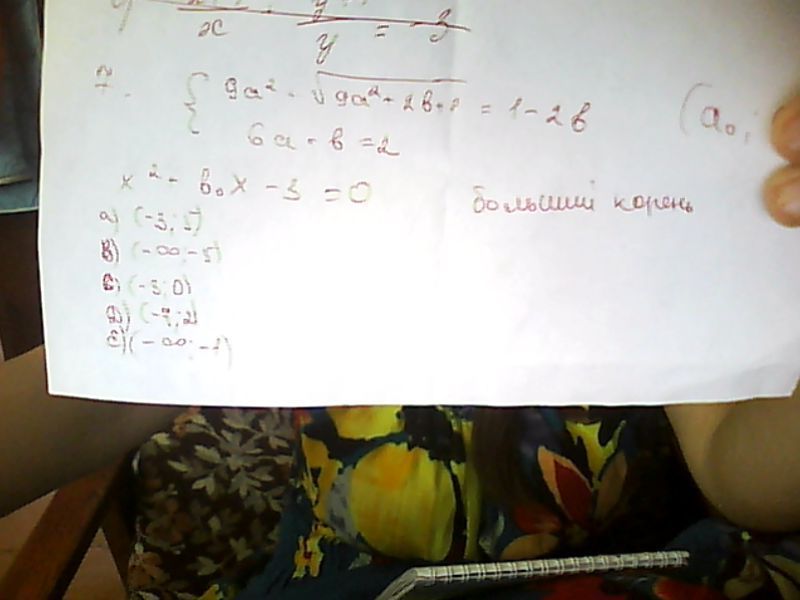 x
y = -3
7.
9a² - √9a² + 2b + 1 = 1 - 2b
(a₀;
6a - b = 2
x² - b₀x - 3 = 0
больший корень
a) (-3; 5)
B) (-∞; -5)
C) (-3; 0)
D) (-7; 2)
E) (-∞; -1)